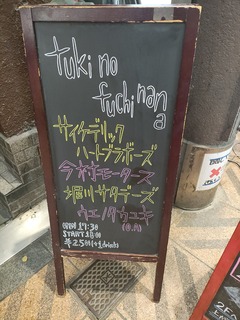 tuki no
fuchinana
サイケデリック
ハートブラボーズ
今村モータース
堀川サタデーズ
ウエノタウユキ
(O.A)
OPEN 17:30
START 18:00
¥2500(+1drink)